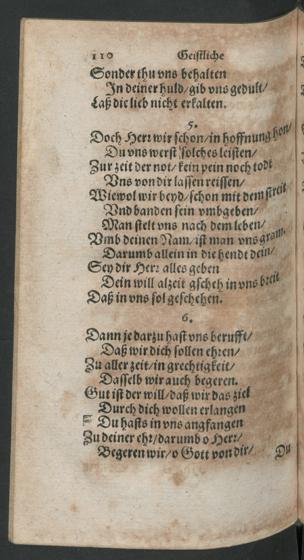 110 Geistliche
Sonder thu vns behalten
In deiner huld/gib vns gedult/
Laß die lieb nicht erkalten.
5.
Doch Herr wir schon/in hoffnung hon/
Du vns werst solches leisten/
Zur zeit der not/kein pein noch todt
Vns von dir lassen reissen/
Wiewol wir beyd/schon mit dem streit
Vnd banden sein vmbgeben/
Man stelt vns nach dem leben/
Vmb deinen Nam/ist man vns gram.
Darumb allein in die hendt dein/
Sey dir Herr alles geben
Dein will alzeit gscheh in vns breit
Daß in vns sol geschehen.
6.
Dann je darzu hast vns berufft/
Daß wir dich sollen ehren/
Zu aller zeit/in grechtigkeit/
Dasselb wir auch begeren.
Gut ist der will/daß wir das ziel
Durch dich wollen erlangen
Du hasts in vns angfangen
Zu deiner ehr/darumb o Herr/
Begeren wir/o Gott von dir/
Du